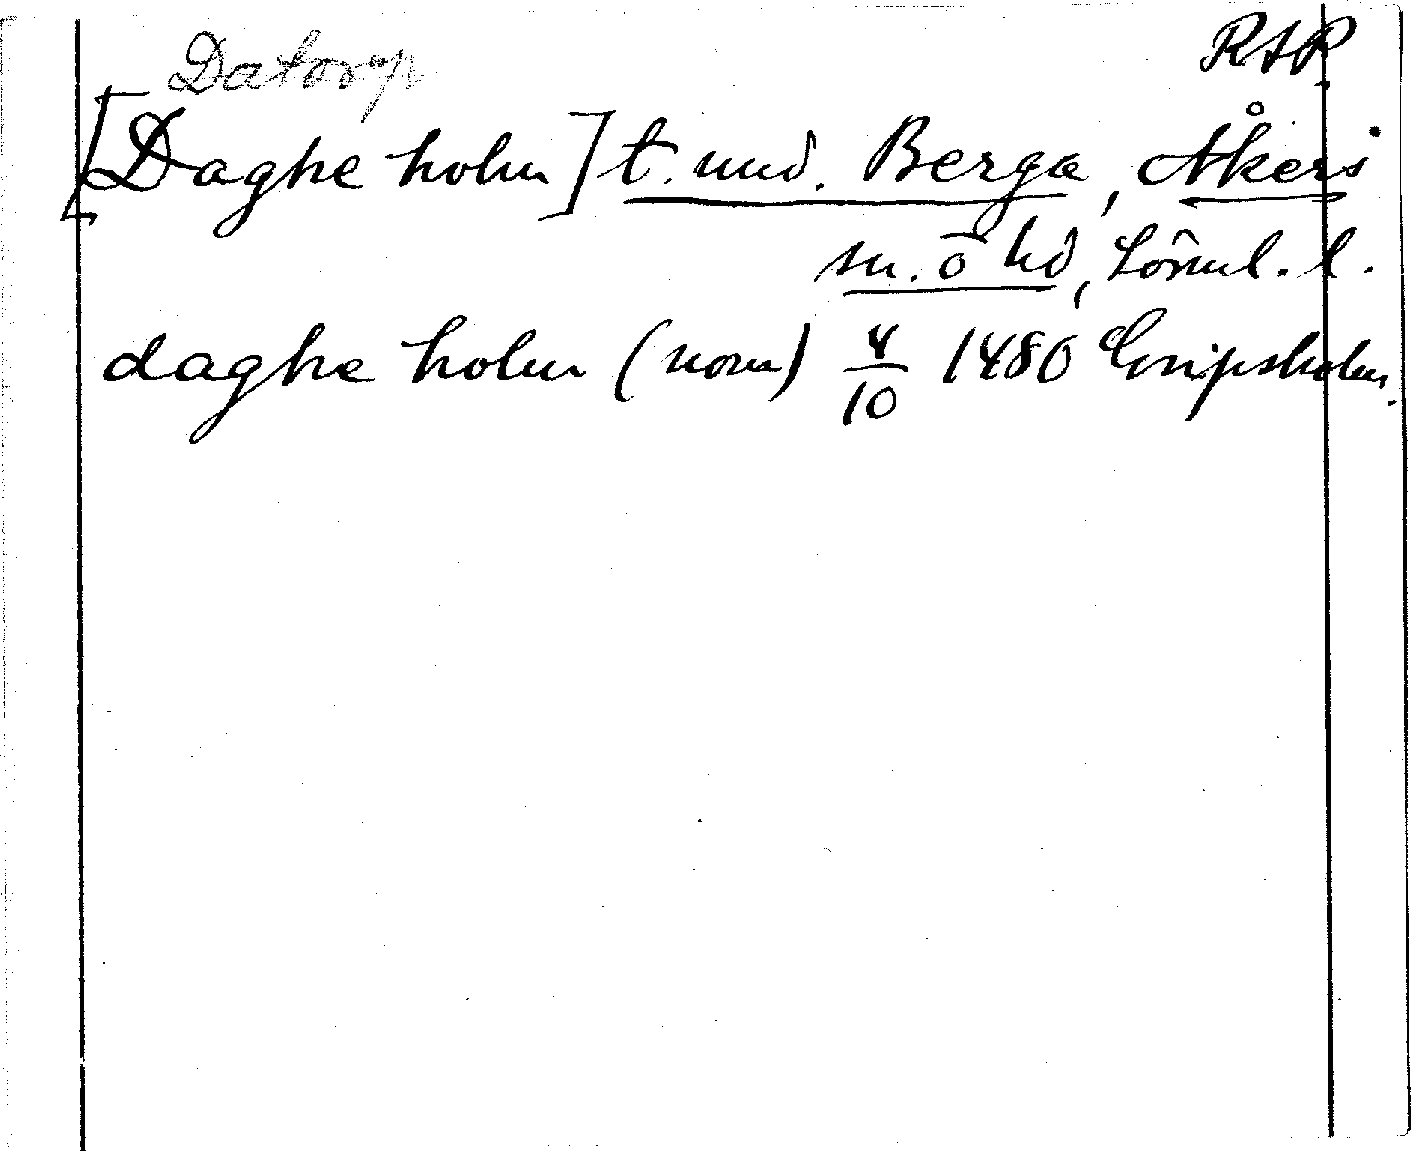 Datorp RAP.
[Daghe holm] t. und. Berga, Åkers
sn. ö hd, Söml. l.
daghe holm (nom) 4/10 1480 Gripsholm.